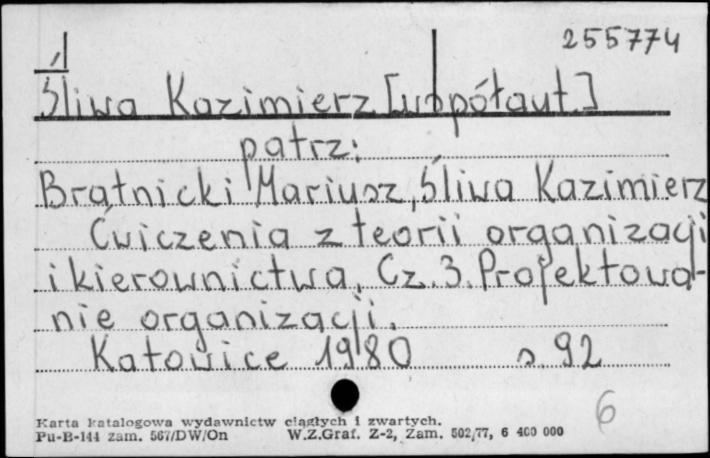 255774
Śliwa Kazimierz [współaut.]
patrz:
Bratnicki Mariusz, Śliwa Kazimierz
Ćwiczenia z teorii organizacji
i kierownictwa. Cz. 3. Projektowa-
nie organizacji.
Katowice 1980 s. 92
6
Karta katalogowa wydawnictw ciągłych i zwartych.
Pu-B-144 zam. 567/DW/On W.Z.Graf. Z-2, Zam. 502/77, 6 400 000